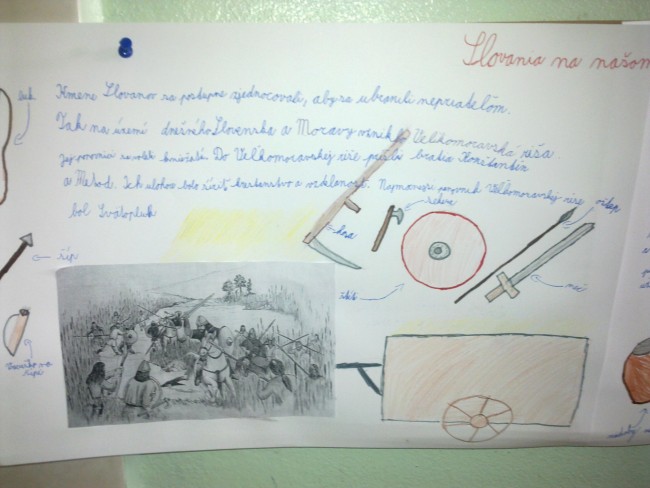 Slovania na našom
Kmene Slovanov sa postupne zjednocovali, aby sa ubránili nepriateľom.
Tak na území dnešného Slovenska a Moravy vznikla Veľkomoravská ríša.
Jej panovníci sa volali kniežatá. Do Veľkomoravskej ríše prišli bratia Konštantín
a Metod. Ich úlohou bolo šíriť kresťanstvo a vzdelanosť. Najznámejší panovník Veľkomoravskej ríše
bol Svätopluk
luk
sekera
oštep
kosa
šíp
meč
štít